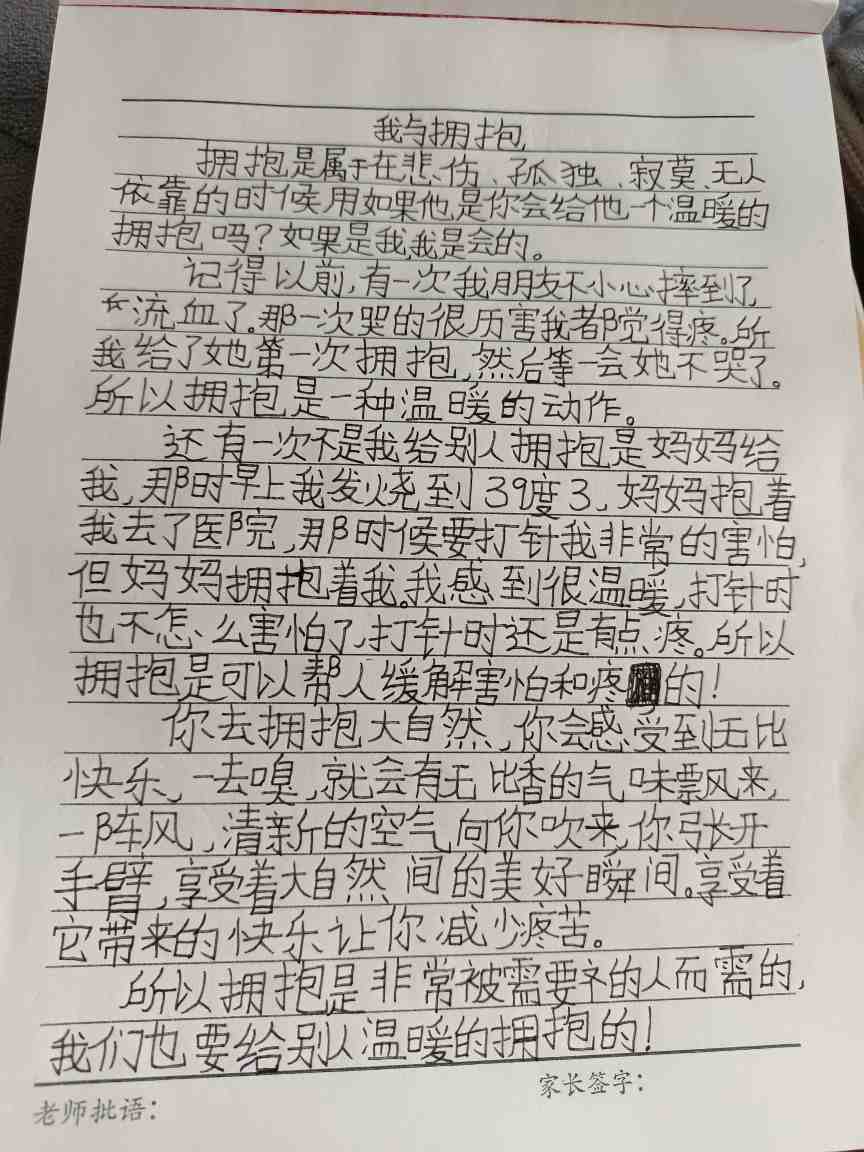 我与拥抱
拥抱是属于在悲伤、孤独、寂莫、无人
依靠的时候用如果他是你会给他一个温暖的
拥抱吗?如果是我,我是会的。
记得以前,有一次我朋友不小心摔到了,
流血了。那一次哭的很历害我都觉得疼。所
我给了她第一次拥抱,然后等一会她不哭了。
所以拥抱是一种温暖的动作。
还有一次不是我给别人拥抱是妈妈给
我,那时早上我发烧到39度3,妈妈抱着
我去了医院,那时候要打针我非常的害怕,
但妈妈拥抱着我。我感到很温暖,打针时
也不怎么害怕了,打针时还是有点疼。所以
拥抱是可以帮人缓解害怕和疼的!
你去拥抱大自然,你会感受到无比
快乐,一去嗅,就会有无比香的气味票风来,
一阵风,清新的空气向你吹来,你张开
手臂,享受着大自然间的美好瞬间。享受着
它带来的快乐让你减少疼苦。
所以拥抱是非常被需要的人而需的,
我们也要给别人温暖的拥抱的!
家长签字:
老师批语: